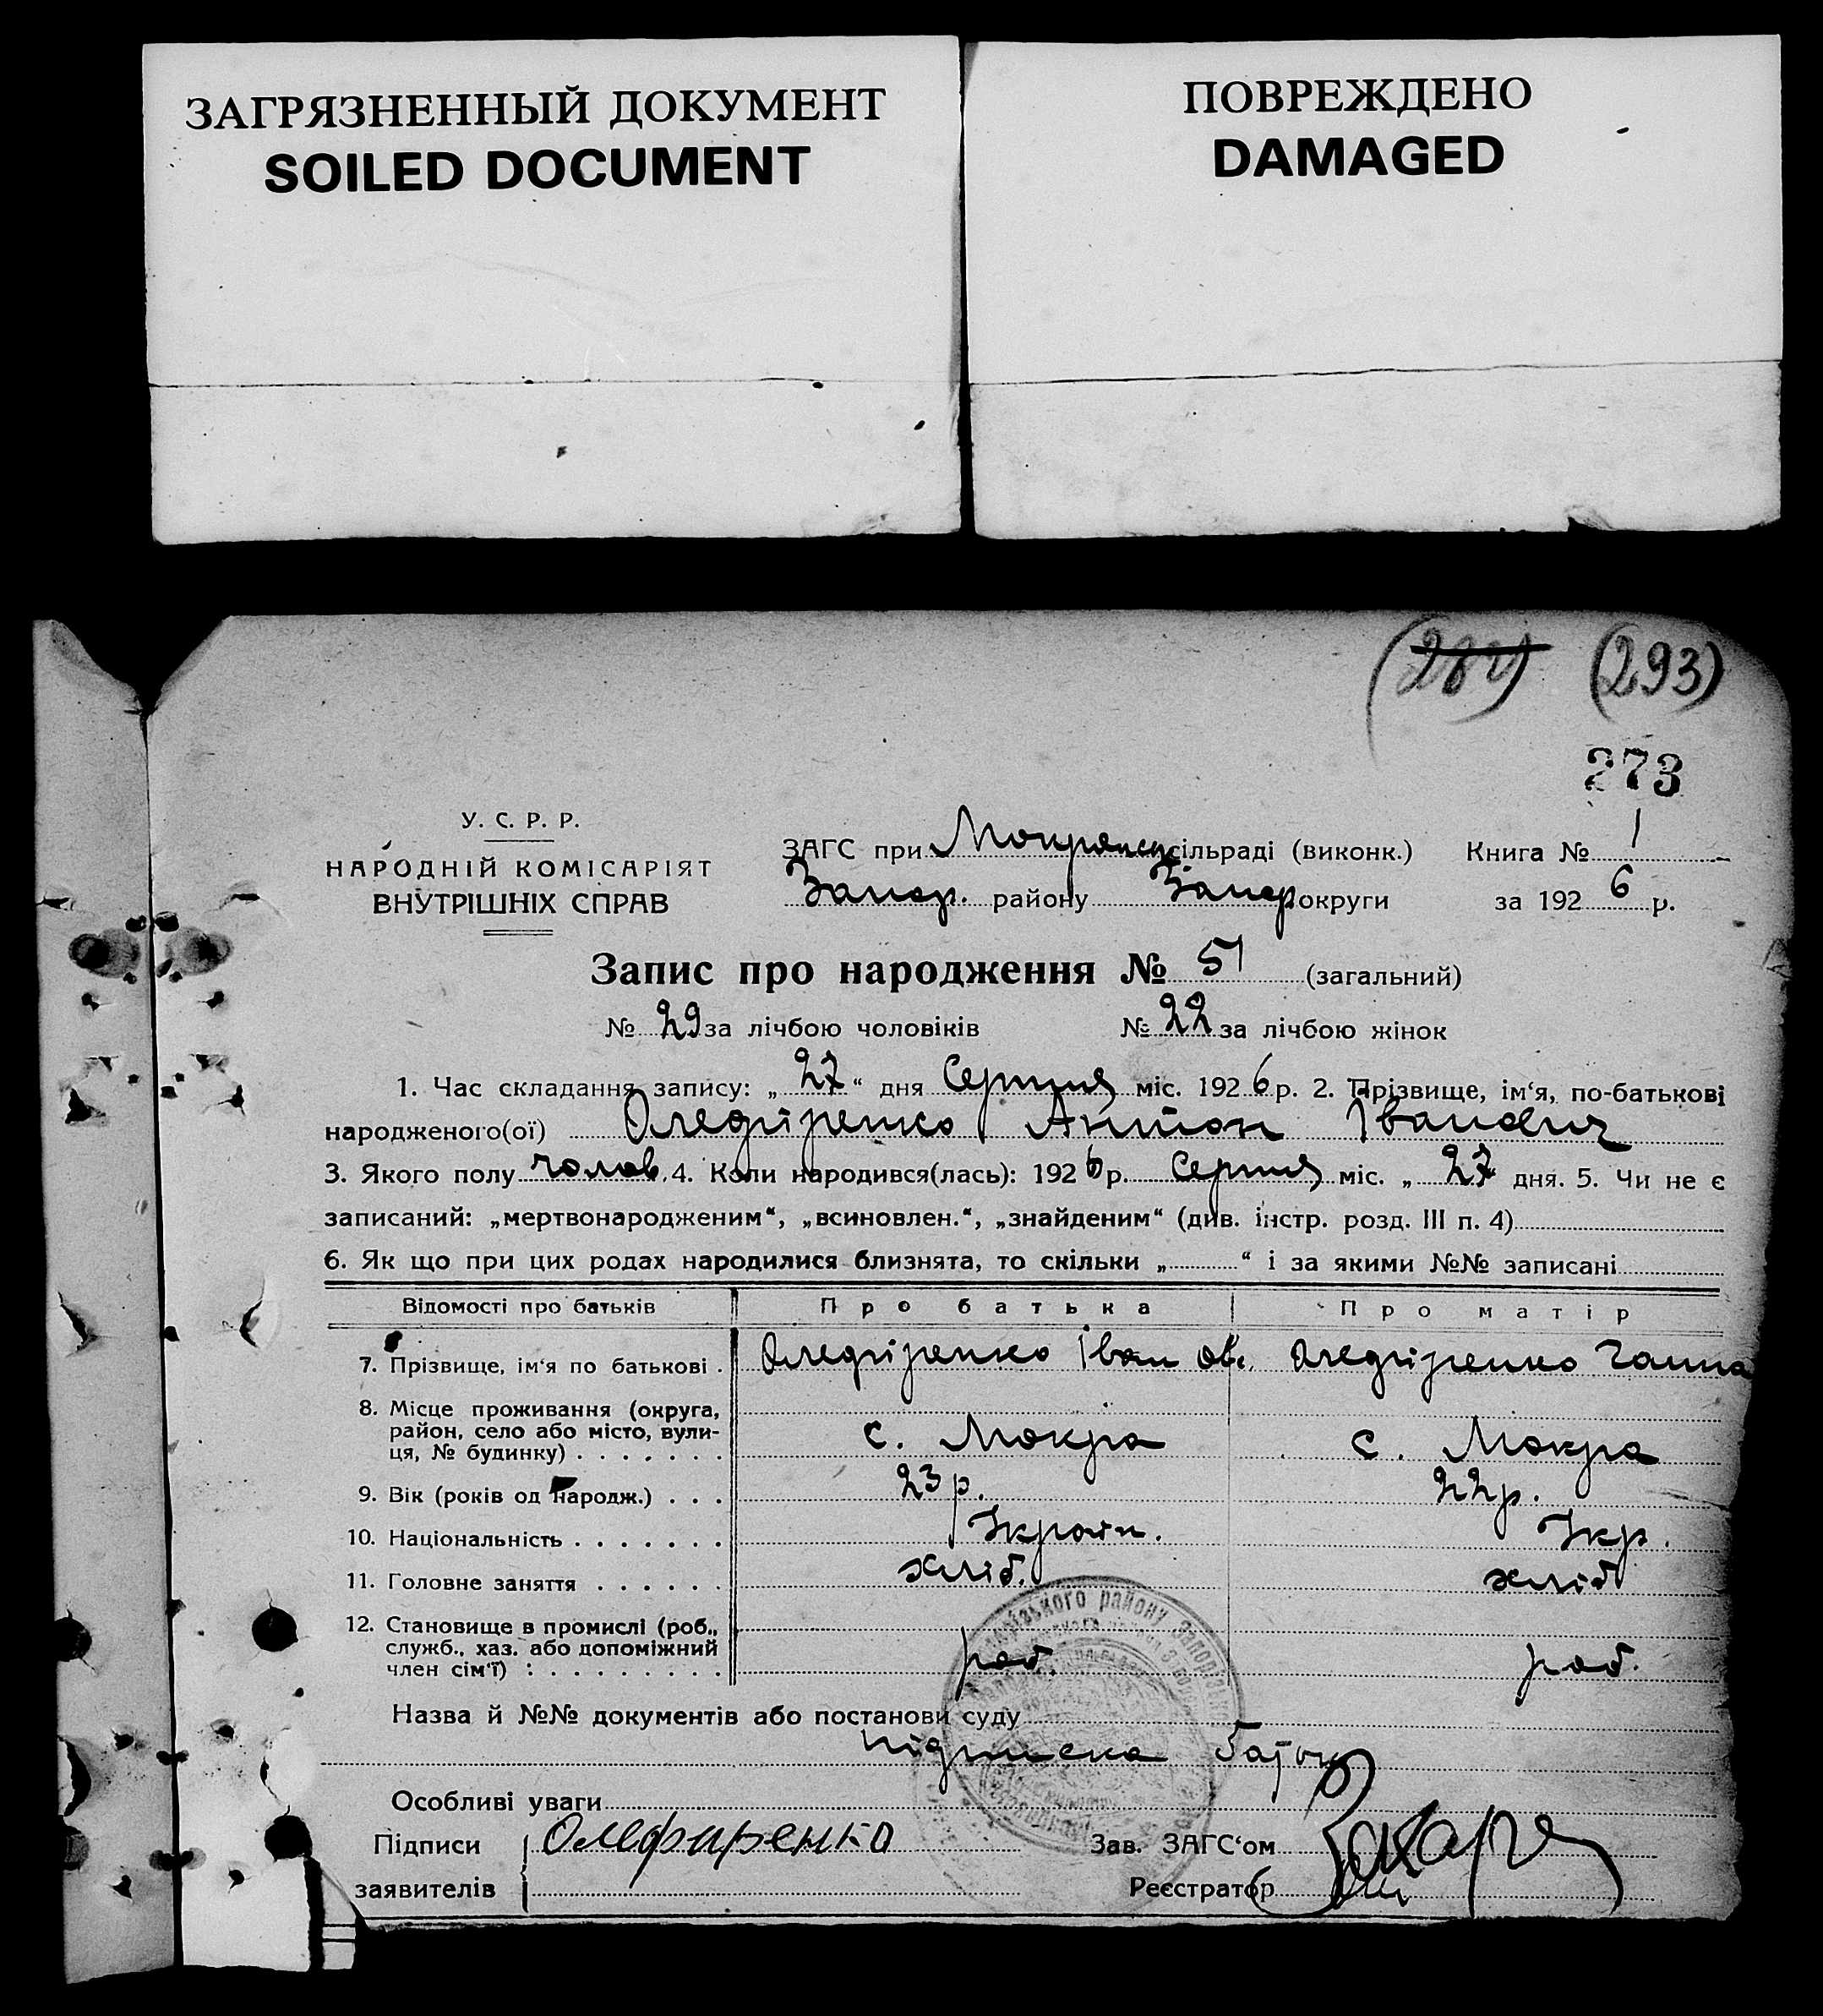 ЗАГРЯЗНЕННЫЙ ДОКУМЕНТ
SOILED DOCUMENT
ПОВРЕЖДЕНО
DAMAGED
(293)
273
У. С. Р. Р.
НАРОДНІЙ КОМІСАРІЯТ
ВНУТРІШНІХ СПРАВ
ЗАГС при Мокрянськ сільраді (виконк.) Книга № 1
Запор. району Запор округи за 1926 р.
Запис про народження № 51 (загальний)
№ 29 за лічбою чоловіків № 22 за лічбою жінок
1. Час складання запису: „27“ дня Серпня міс. 1926 р. 2. Прізвище, ім‘я, по-батькові
народженого(ої) Олефіренко Антон Іванович
3. Якого полу чолов. 4. Коли народився(лась): 1926 р. Серпня міс. „27 дня. 5. Чи не є
записаний: „мертвонародженим“, „всиновлен.“, „знайденим“ (див. інстр. розд. III п. 4)
6. Як що при цих родах народилися близнята, то скільки „ “ і за якими №№ записані
Відомості про батьків Про батька Про матір
7. Прізвище, ім‘я по батькові . Олефіренко Іван Олефіренко Ганна
8. Місце проживання (округа,
район, село або місто, вули-
ця, № будинку) . . . . . . . с. Мокра с. Мокра
9. Вік (років од народж.) . . . 23 р. 22 р.
10. Національність . . . . . . . Україн. Укр.
11. Головне заняття . . . . . . хліб. хліб
12. Становище в промислі (роб.,
служб., хаз. або допоміжний
член сім‘ї) : . . . . . . . . . роб. роб.
Назва й №№ документів або постанови суду
підписка батьк
Особливі уваги
Підписи Олефиренко Зав. ЗАГС‘ом
заявителів Реєстратор